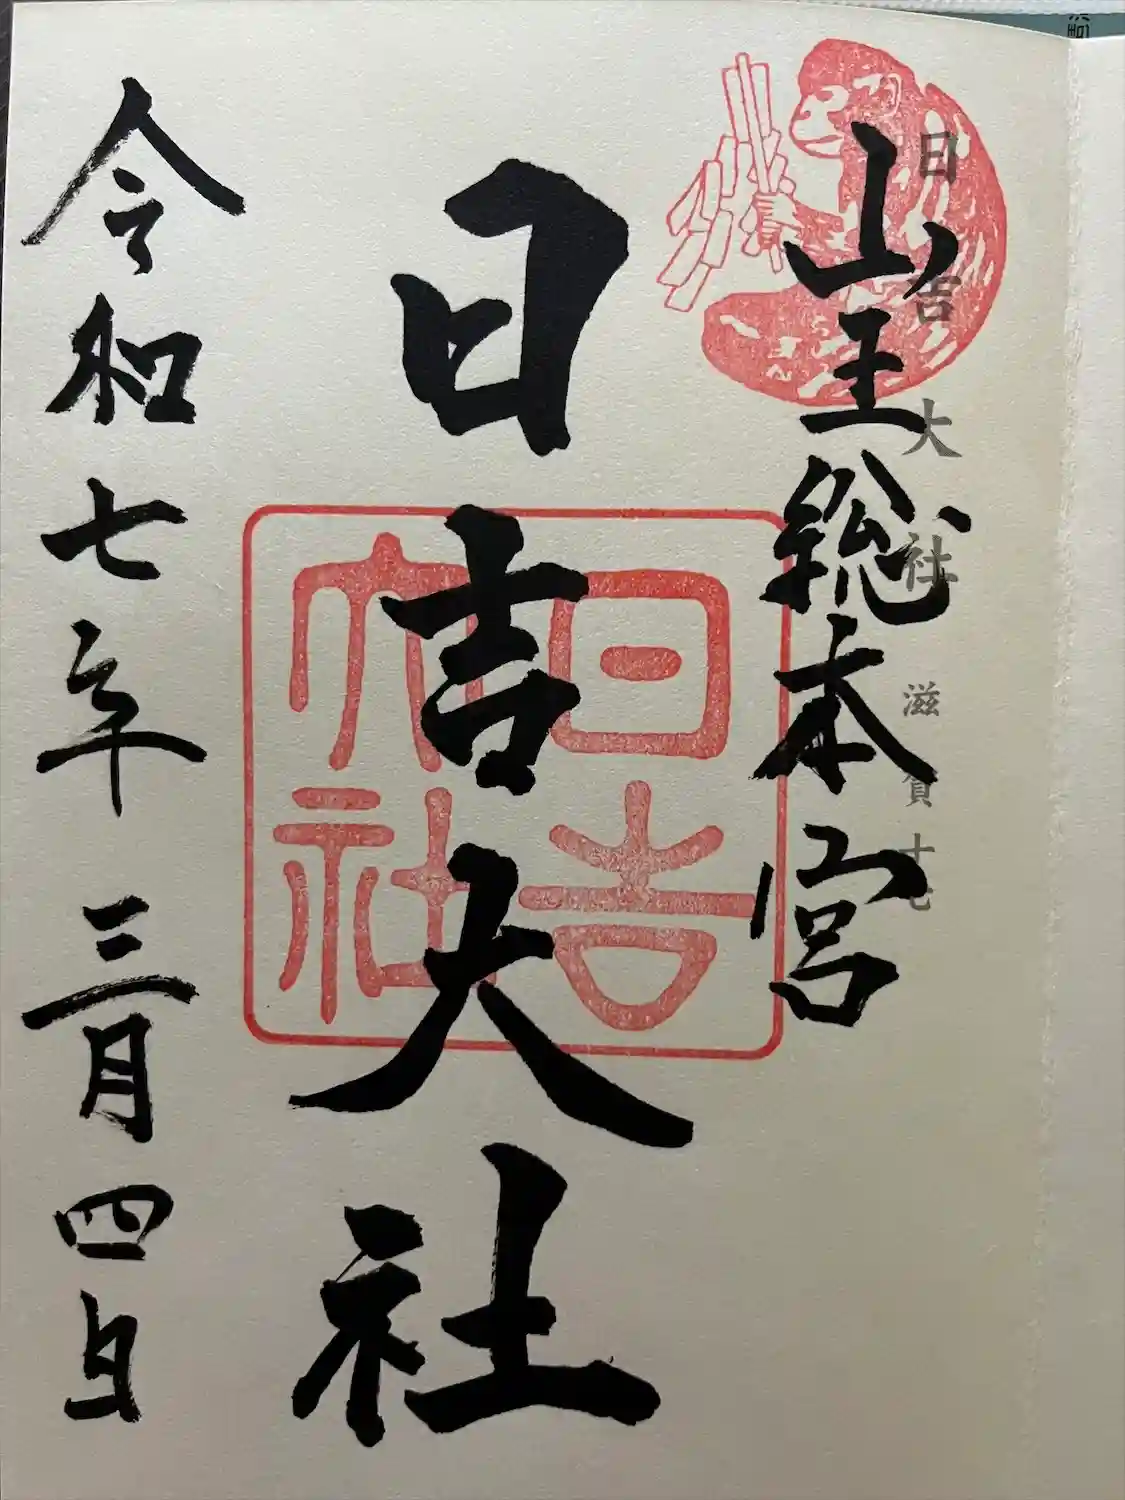 日吉大社 滋賀十七
山王総本宮
日吉大社
日吉大社
令和七年三月四日